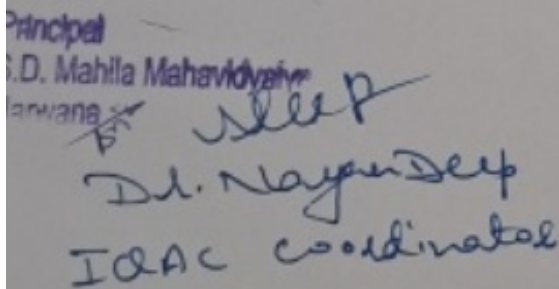 Principal
S.D. Mahila Mahavidyalya
Narwana
Dr. NayanDeep
IQAC coordinator